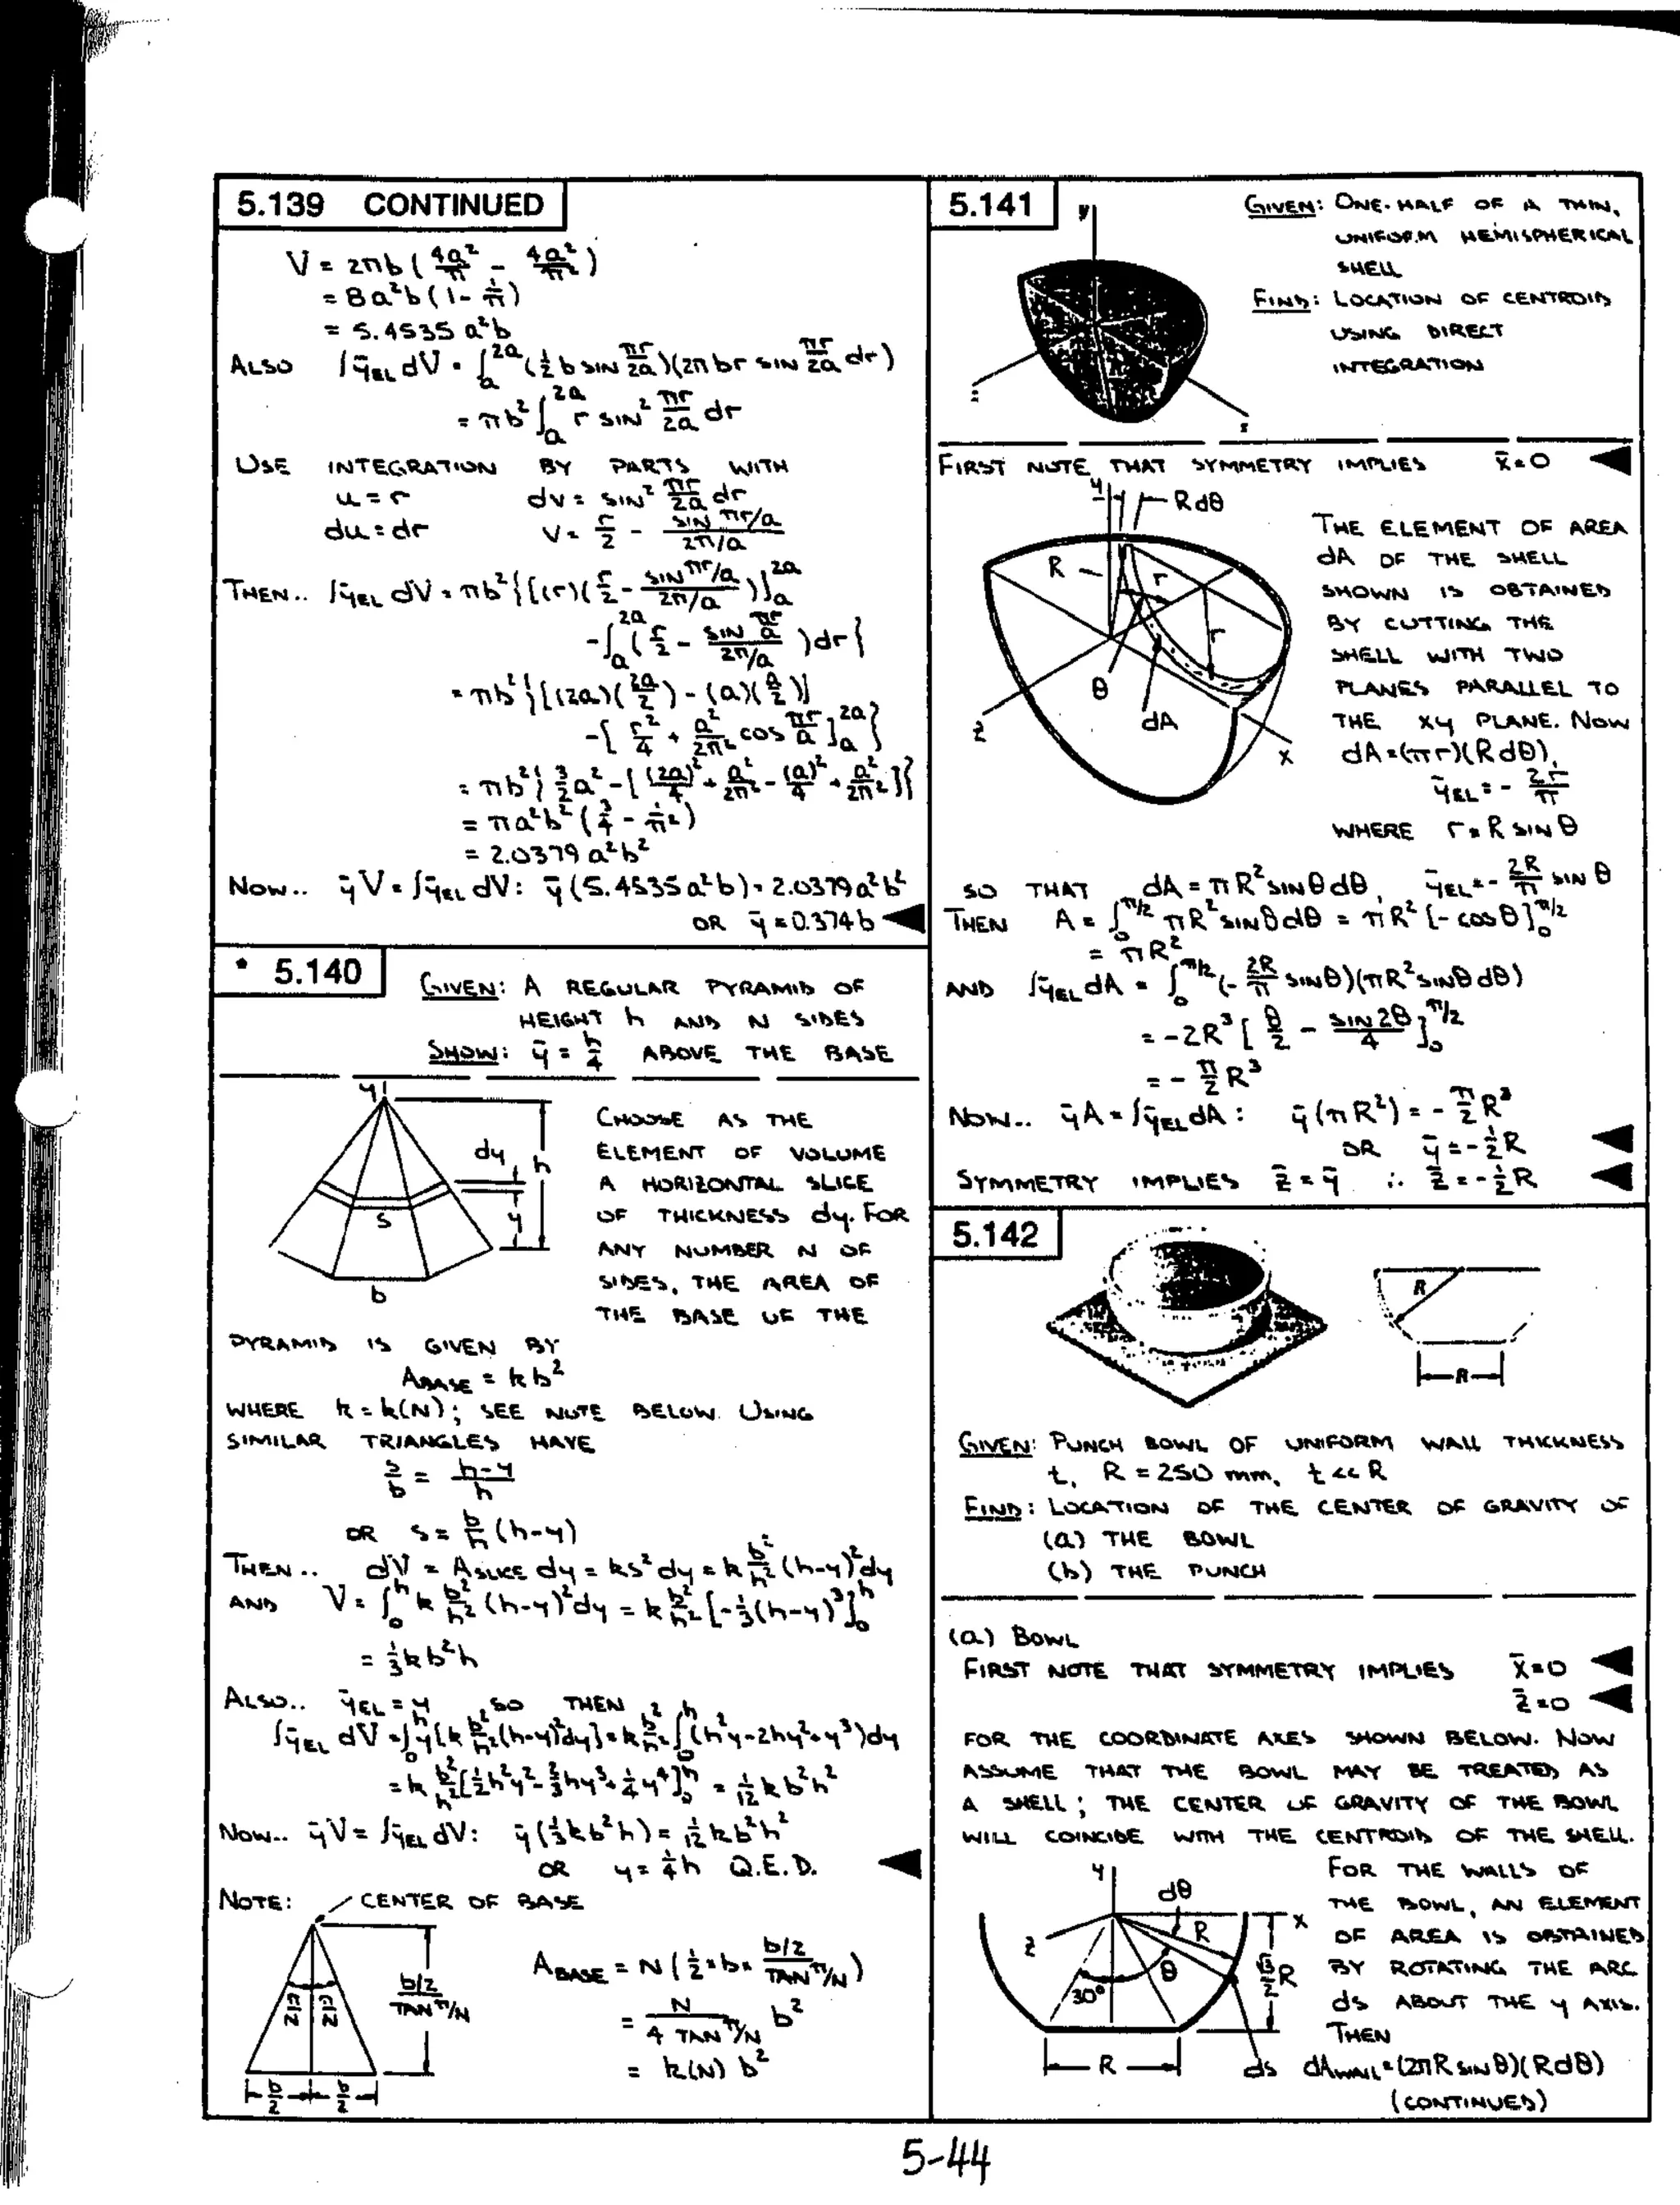 5.139 CONTINUED
V = 2πb (4a²/π - 4a²/π²)
= 8a²b (1 - 1/π)
= 5.4535 a²b
ALSO ∫ȳEL dV = ∫a^2a (½ b SIN πr/2a)(2πbr SIN πr/2a dr)
= πb² ∫a^2a r SIN² πr/2a dr
USE INTEGRATION BY PARTS WITH
u = r dv = SIN² πr/2a dr
du = dr v = r/2 - (SIN πr/a)/(2π/a)
THEN.. ∫ȳEL dV = πb² {[(r)(r/2 - (SIN πr/a)/(2π/a))]a^2a
- ∫a^2a (r/2 - (SIN πr/a)/(2π/a)) dr}
= πb² {[(2a)(2a/2) - (a)(a/2)]
- [r²/4 + a²/2π² COS πr/a]a^2a}
= πb² {3/2 a² - [(2a)²/4 + a²/2π² - (a)²/4 + a²/2π²]}
= πa²b² (3/4 - 1/π²)
= 2.0379 a²b²
NOW.. ȳV = ∫ȳEL dV: ȳ(5.4535a²b) = 2.0379a²b²
OR ȳ = 0.374b ◀
* 5.140
GIVEN: A REGULAR PYRAMID OF
HEIGHT h AND N SIDES
SHOW: ȳ = h/4 ABOVE THE BASE
y
dy
h
s
y
b
CHOOSE AS THE
ELEMENT OF VOLUME
A HORIZONTAL SLICE
OF THICKNESS dy. FOR
ANY NUMBER N OF
SIDES, THE AREA OF
THE BASE OF THE
PYRAMID IS GIVEN BY
ABASE = kb²
WHERE k = k(N); SEE NOTE BELOW. USING
SIMILAR TRIANGLES HAVE
s/b = (h-y)/h
OR s = b/h (h-y)
THEN.. dV = ASLICE dy = ks² dy = k b²/h² (h-y)² dy
AND V = ∫0^h k b²/h² (h-y)² dy = k b²/h² [-⅓(h-y)³]0^h
= ⅓kb²h
ALSO.. ȳEL = y SO THEN
∫ȳEL dV = ∫0^h y[k b²/h² (h-y)² dy] = k b²/h² ∫0^h (h²y - 2hy² + y³) dy
= k b²/h² [½h²y² - ⅔hy³ + ¼y⁴]0^h = 1/12 kb²h²
NOW.. ȳV = ∫ȳEL dV: ȳ(⅓kb²h) = 1/12 kb²h²
OR y = ¼h Q.E.D. ◀
NOTE: CENTER OF BASE
π/N π/N
(b/2)/(TAN π/N)
b/2 b/2
ABASE = N (½ × b × (b/2)/(TAN π/N))
= N/(4 TAN π/N) b²
= k(N) b²
5.141
y
z
x
GIVEN: ONE-HALF OF A THIN,
UNIFORM HEMISPHERICAL
SHELL
FIND: LOCATION OF CENTROID
USING DIRECT
INTEGRATION
FIRST NOTE THAT SYMMETRY IMPLIES x̄ = 0 ◀
y
R dθ
R
r
r
θ
dA
z
x
THE ELEMENT OF AREA
dA OF THE SHELL
SHOWN IS OBTAINED
BY CUTTING THE
SHELL WITH TWO
PLANES PARALLEL TO
THE xy PLANE. NOW
dA = (πr)(R dθ),
ȳEL = - 2r/π
WHERE r = R SIN θ
SO THAT dA = πR² SIN θ dθ, ȳEL = - 2R/π SIN θ
THEN A = ∫0^π/2 πR² SIN θ dθ = πR² [-COS θ]0^π/2
= πR²
AND ∫ȳEL dA = ∫0^π/2 (- 2R/π SIN θ)(πR² SIN θ dθ)
= -2R³ [θ/2 - SIN 2θ/4]0^π/2
= - π/2 R³
NOW.. ȳA = ∫ȳEL dA: ȳ(πR²) = - π/2 R³
OR ȳ = -½R ◀
SYMMETRY IMPLIES z̄ = ȳ ∴ z̄ = -½R ◀
5.142
R
R
GIVEN: PUNCH BOWL OF UNIFORM WALL THICKNESS
t, R = 250 mm, t << R
FIND: LOCATION OF THE CENTER OF GRAVITY OF
(a) THE BOWL
(b) THE PUNCH
(a) BOWL
FIRST NOTE THAT SYMMETRY IMPLIES x̄ = 0 ◀
z̄ = 0 ◀
FOR THE COORDINATE AXES SHOWN BELOW. NOW
ASSUME THAT THE BOWL MAY BE TREATED AS
A SHELL; THE CENTER OF GRAVITY OF THE BOWL
WILL COINCIDE WITH THE CENTROID OF THE SHELL.
y
dθ
x
z
R
θ
30°
√3/2 R
R
ds
FOR THE WALLS OF
THE BOWL, AN ELEMENT
OF AREA IS OBTAINED
BY ROTATING THE ARC
ds ABOUT THE y AXIS.
THEN
dAWALL = (2πR SIN θ)(R dθ)
(CONTINUED)
5-44